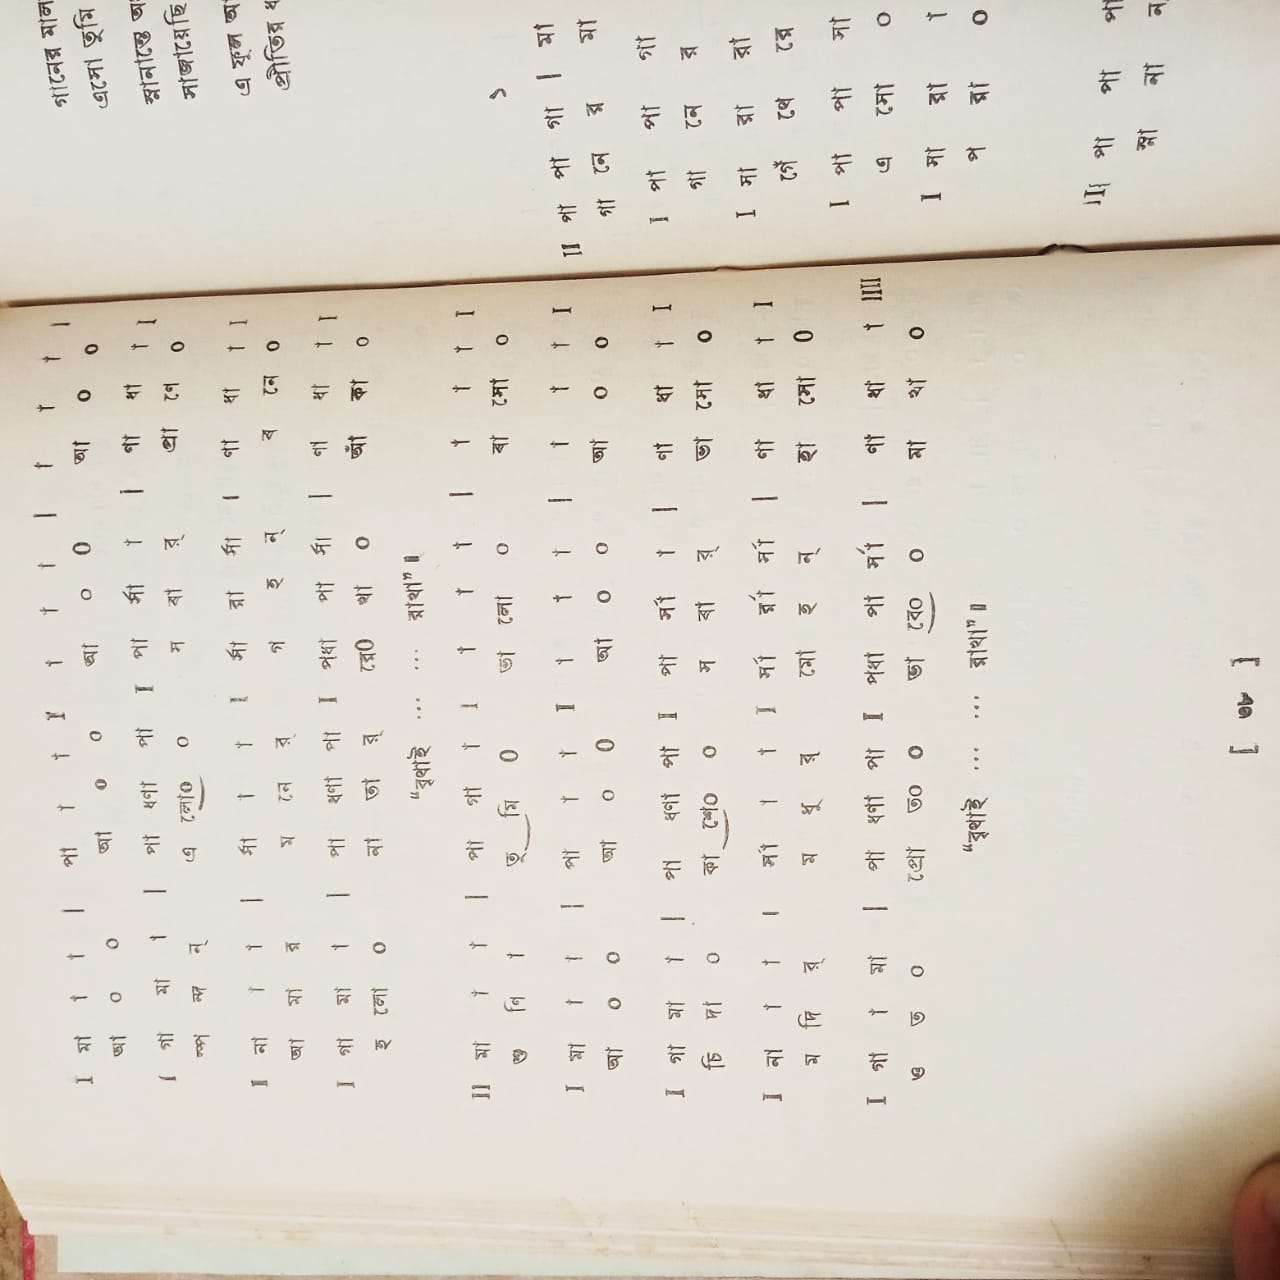 I মা া া া | পা া া া I া া া া | া া া া |
আ ০ ০ আ ০ ০ আ ০ ০ আ ০ ০
I গা মা া | পা ধণা পা I পা র্সা া | ণা ধা া I
স্প ন্দ ন্ এ লো০ ০ স বা র্ প্রা ণে ০
I না া া | র্সা া া I র্সা রা র্সা | ণা ধা া I
আ মা র ম নে র্ গ হ ন্ ব নে ০
I গা মা া | পা ধণা পা I পধা পা র্সা | ণা ধা া I
হ লো ০ না তা র্ রে০ থা ০ আঁ কা ০
“বৃথাই ... ... রাধা”॥
II মা া া | পা গা া I া া া | া া া I
শু নি া তু মি ০ ভা লো ০ বা সো ০
I মা া া | পা া া I া া া | া া া I
আ ০ ০ আ ০ ০ আ ০ ০ আ ০ ০
I গা মা া | পা ধণা পা I পা র্সা া | ণা ধা া I
চি দা ০ কা শে০ ০ স বা র্ ভা সো ০
I না া া | র্সা া া I র্সা র্রা র্সা | ণা ধা া I
ম দি র্ ম ধু র্ মো হ ন্ হা সো ০
I গা া মা | পা ধণা পা I পধা পা র্সা | ণা ধা া IIII
ও ত ০ প্রো ত০ ০ ভা বে০ ০ মা থা ০
“বৃথাই ... ... রাধা”॥
[ ৩৮ ]
গানের
এসো তুমি
সাজায়েছি
এ ফুল
প্রীতির
১
II পা পা গা | মা
গা নে র মা
I পা পা গা
গা নে র
I মা রা রা
গেঁ থে রে
I পা পা মা
এ সো ০
I মা রা া
প রা ০
পা পা পা